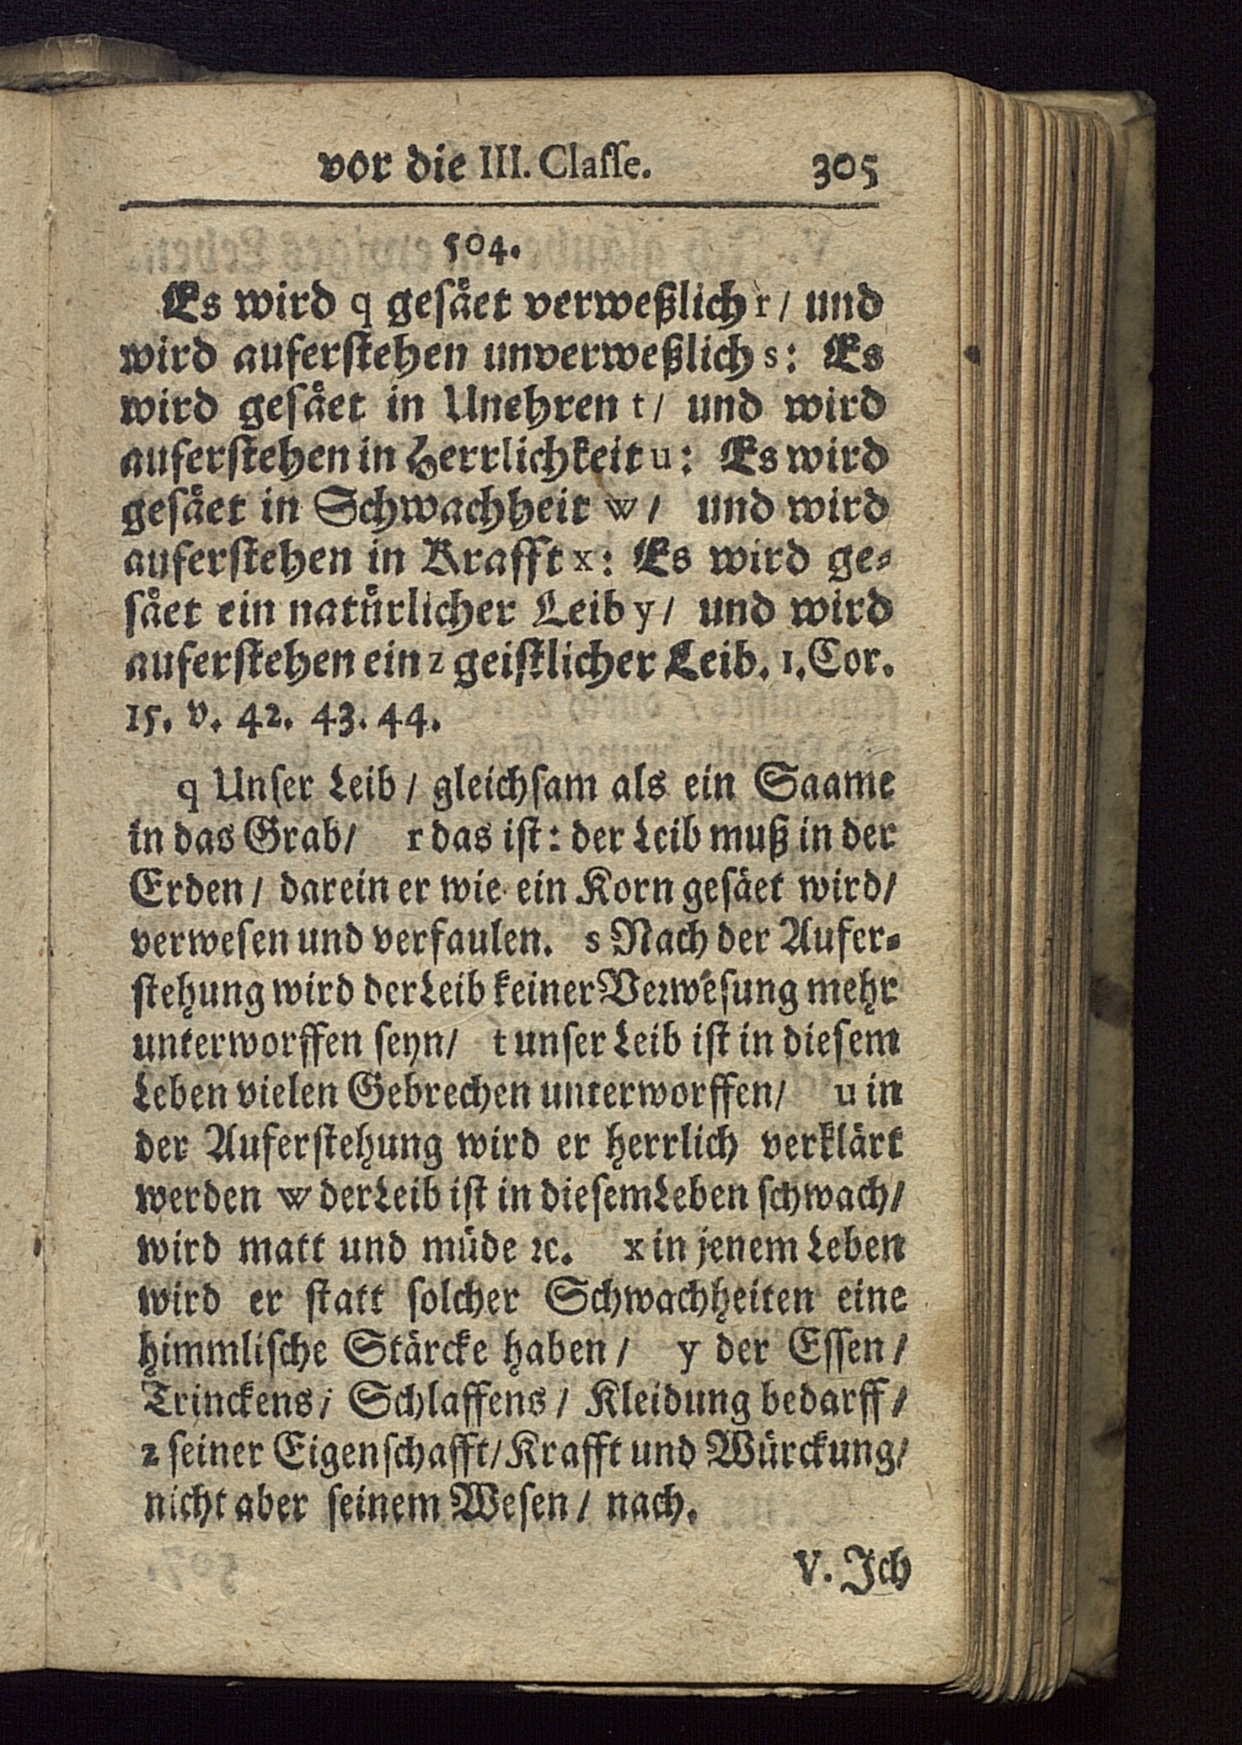 vor die III. Classe. 305
504.
Es wird q gesäet verweßlich r / und
wird auferstehen unverweßlich s: Es
wird gesäet in Unehren t / und wird
auferstehen in Herrlichkeit u: Es wird
gesäet in Schwachheit w / und wird
auferstehen in Krafft x: Es wird ge-
säet ein natürlicher Leib y / und wird
auferstehen ein z geistlicher Leib. 1. Cor.
15. v. 42. 43. 44.
q Unser Leib / gleichsam als ein Saame
in das Grab / r das ist: der Leib muß in der
Erden / darein er wie ein Korn gesäet wird /
verwesen und verfaulen. s Nach der Aufer-
stehung wird der Leib keiner Verwesung mehr
unterworffen seyn / t unser Leib ist in diesem
Leben vielen Gebrechen unterworffen / u in
der Auferstehung wird er herrlich verklärt
werden w der Leib ist in diesem Leben schwach /
wird matt und müde ꝛc. x in jenem Leben
wird er statt solcher Schwachheiten eine
himmlische Stärcke haben / y der Essen /
Trinckens / Schlaffens / Kleidung bedarff /
z seiner Eigenschafft / Krafft und Würckung /
nicht aber seinem Wesen / nach.
V. Ich